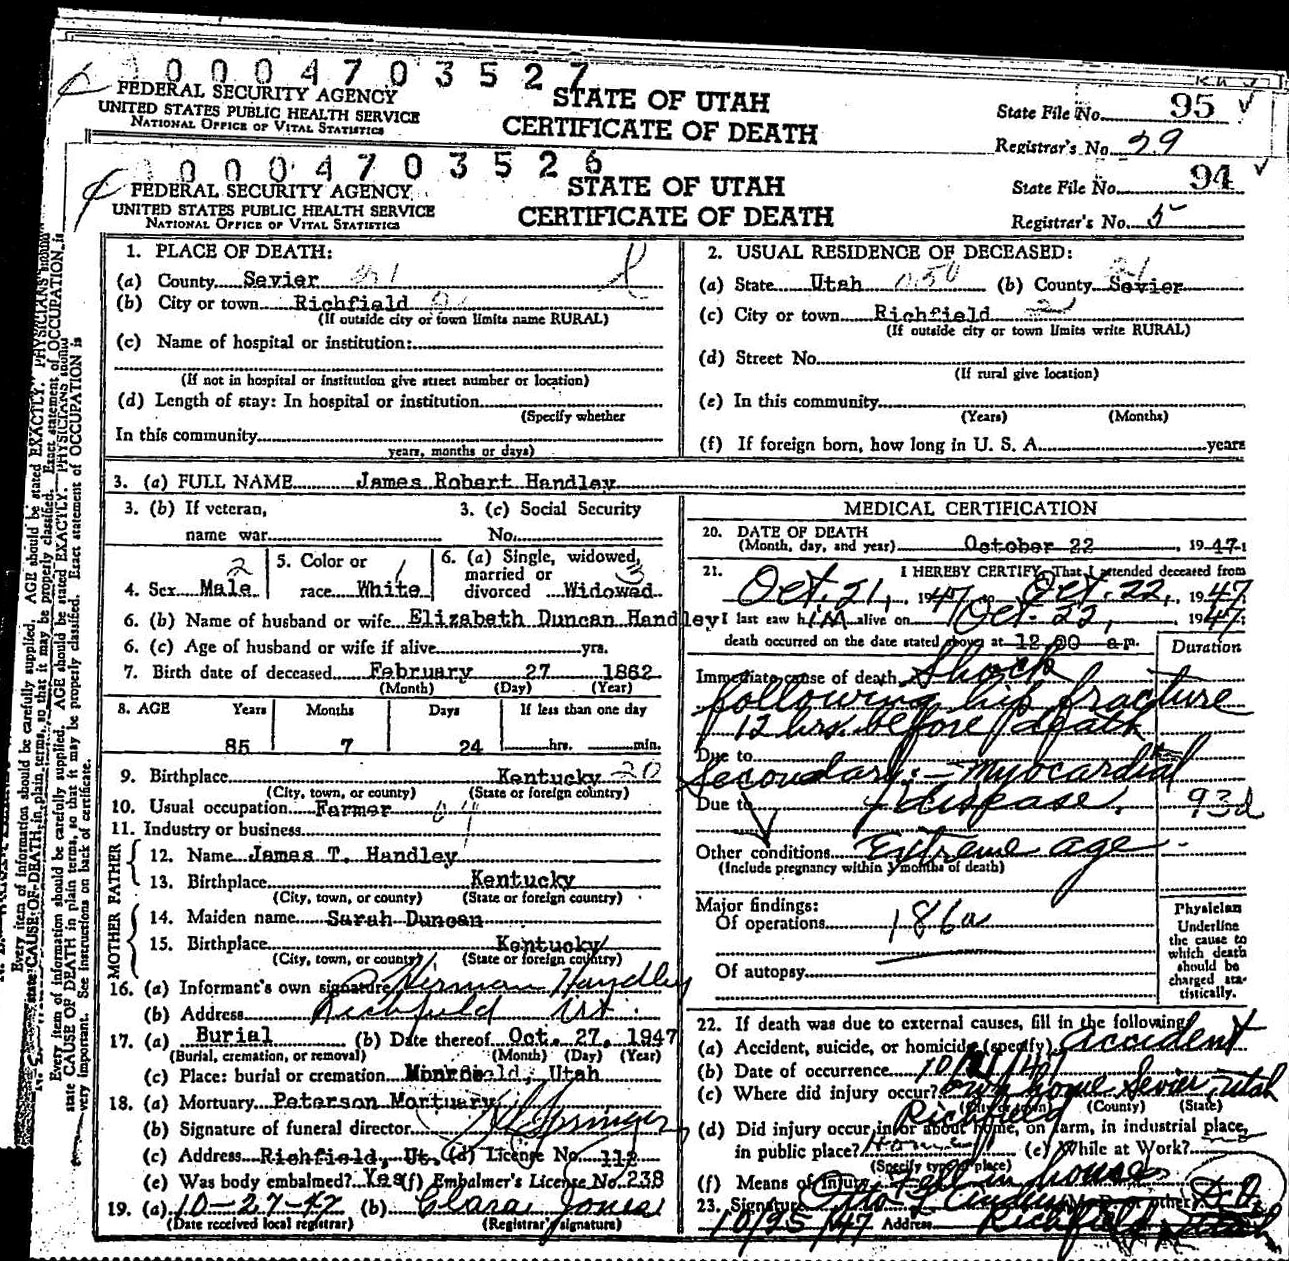 0004703527
FEDERAL SECURITY AGENCY
UNITED STATES PUBLIC HEALTH SERVICE
NATIONAL OFFICE OF VITAL STATISTICS
STATE OF UTAH
CERTIFICATE OF DEATH
State File No. 95
Registrar's No. 29
0004703526
FEDERAL SECURITY AGENCY
UNITED STATES PUBLIC HEALTH SERVICE
NATIONAL OFFICE OF VITAL STATISTICS
STATE OF UTAH
CERTIFICATE OF DEATH
State File No. 94
Registrar's No. 5
1. PLACE OF DEATH:
(a) County Sevier
(b) City or town Richfield
(If outside city or town limits name RURAL)
(c) Name of hospital or institution:
(If not in hospital or institution give street number or location)
(d) Length of stay: In hospital or institution
(Specify whether
In this community
years, months or days)
2. USUAL RESIDENCE OF DECEASED:
(a) State Utah 050 (b) County Sevier
(c) City or town Richfield
(If outside city or town limits write RURAL)
(d) Street No.
(If rural give location)
(e) In this community
(Years) (Months)
(f) If foreign born, how long in U. S. A. years
3. (a) FULL NAME James Robert Handley
3. (b) If veteran, name war
3. (c) Social Security No.
4. Sex Male 2
5. Color or race White 1
6. (a) Single, widowed, married or divorced Widowed 3
6. (b) Name of husband or wife Elizabeth Duncan Handley
6. (c) Age of husband or wife if alive yrs.
7. Birth date of deceased February 27 1862
(Month) (Day) (Year)
8. AGE Years Months Days If less than one day
85 7 24 hrs. min.
9. Birthplace Kentucky 20
(City, town, or county) (State or foreign country)
10. Usual occupation Farmer
11. Industry or business
FATHER
12. Name James T. Handley
13. Birthplace Kentucky
(City, town, or county) (State or foreign country)
MOTHER
14. Maiden name Sarah Duncan
15. Birthplace Kentucky
(City, town, or county) (State or foreign country)
16. (a) Informant's own signature Hirman Handley
(b) Address Richfield Ut.
17. (a) Burial (b) Date thereof Oct. 27, 1947
(Burial, cremation, or removal) (Month) (Day) (Year)
(c) Place: burial or cremation Utah
18. (a) Mortuary Peterson Mortuary
(b) Signature of funeral director
(c) Address Richfield, Ut. (d) License No. 112
(e) Was body embalmed? Yes (f) Embalmer's License No. 238
19. (a) 10-27-47 (b) Clara Jones
(Date received local registrar) (Registrar's signature)
MEDICAL CERTIFICATION
20. DATE OF DEATH
(Month, day, and year) October 22, 1947
21. I HEREBY CERTIFY, That I attended deceased from
Oct. 21, 1947 to Oct. 22, 1947
I last saw him alive on Oct. 22, 1947;
death occurred on the date stated above at 12:00 a m.
Duration
Immediate cause of death Shock
following hip fracture
12 hrs. before death
Due to
Secondary: - myocardial
Due to disease. 93d
Other conditions Extreme age
(Include pregnancy within 3 months of death)
Major findings:
Of operations 186a
Of autopsy
Physician
Underline
the cause to
which death
should be
charged sta-
tistically.
22. If death was due to external causes, fill in the following:
(a) Accident, suicide, or homicide (specify) Accident
(b) Date of occurrence 10/21/47
(c) Where did injury occur? own home Sevier, Utah
Richfield
(City or town) (County) (State)
(d) Did injury occur in or about home, on farm, in industrial place,
in public place? Home (e) While at Work? no
(Specify type of place)
(f) Means of Injury Fell in house
23. Signature Otto M. D. or other
10/25/47 Address Richfield Utah